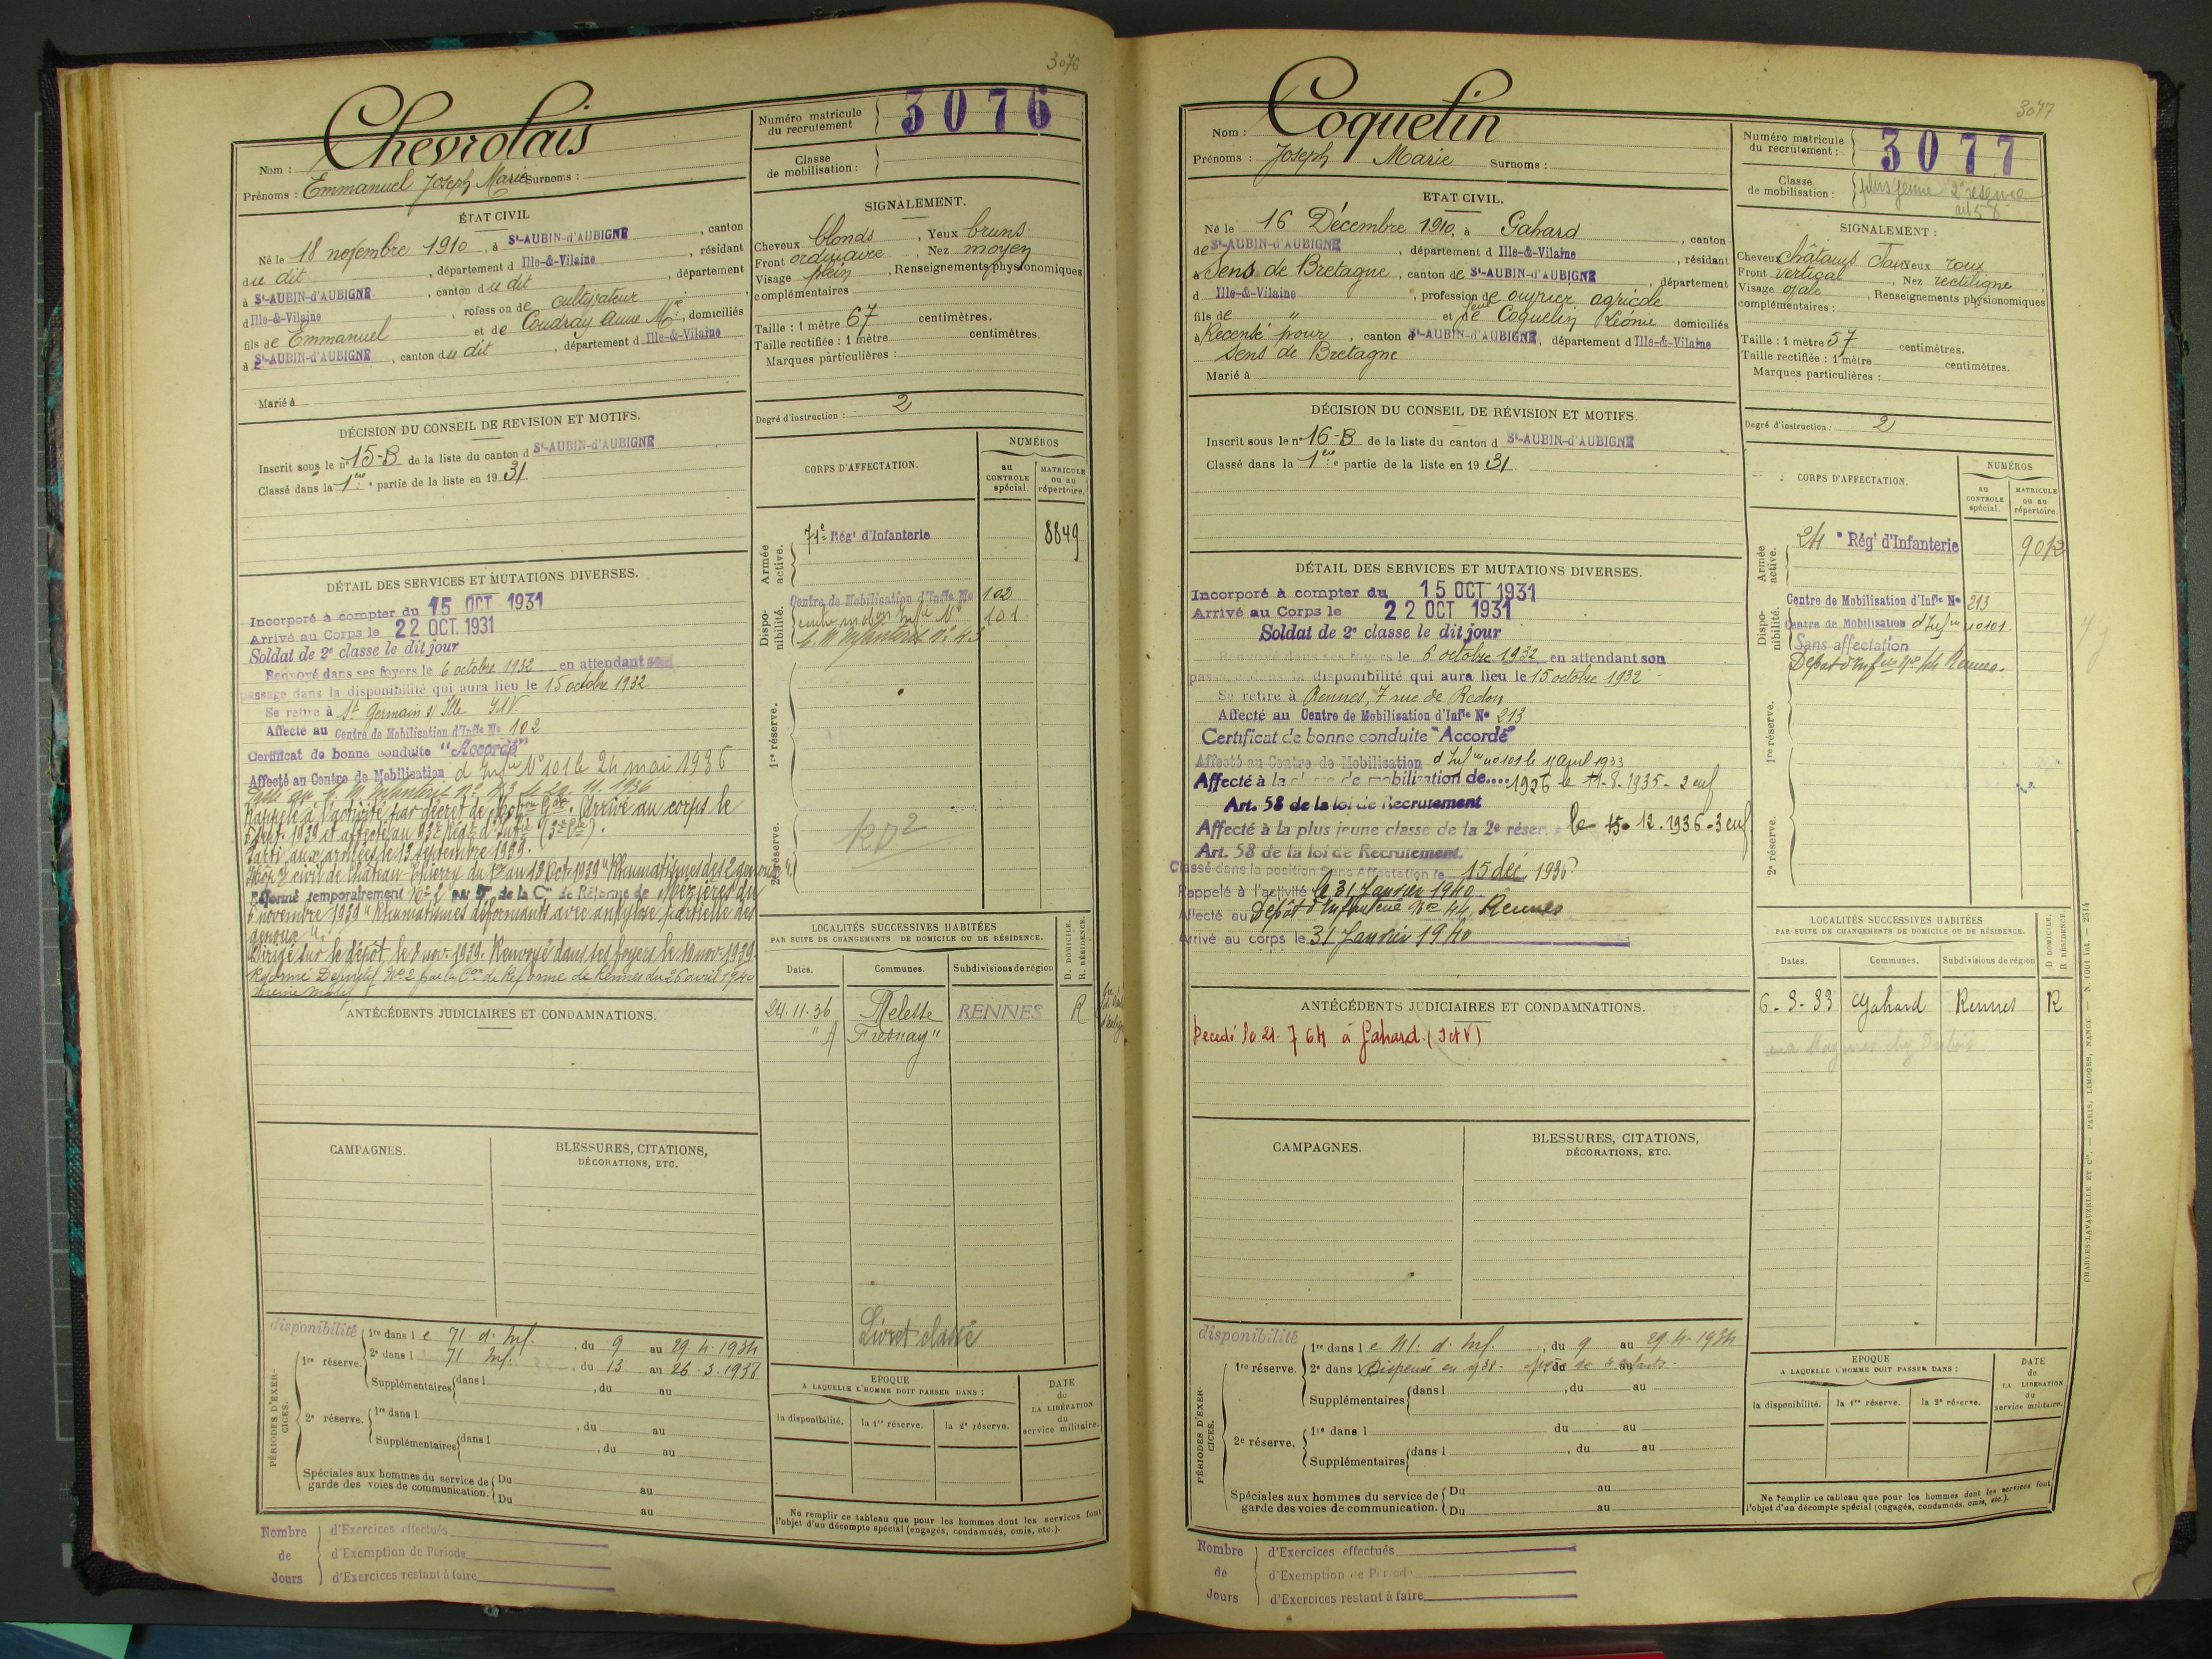 3076
Nom : Chevrolais
Prénoms : Emmanuel Joseph Marie Surnoms :
Numéro matricule du recrutement 3076
Classe de mobilisation :
ÉTAT CIVIL
Né le 18 novembre 1910, à St-AUBIN-d'AUBIGNÉ, canton
du dit, département d Ille-&-Vilaine, résidant
à St-AUBIN-d'AUBIGNÉ, canton du dit, département
d Ille-&-Vilaine, profession de cultivateur
fils de Emmanuel et de Coudray Anne Mie, domiciliés
à St-AUBIN-d'AUBIGNÉ, canton du dit, département d Ille-&-Vilaine
Marié à
SIGNALEMENT.
Cheveux blonds, Yeux bruns
Front ordinaire, Nez moyen
Visage plein, Renseignements physionomiques
complémentaires
Taille : 1 mètre 67 centimètres.
Taille rectifiée : 1 mètre centimètres.
Marques particulières :
Degré d'instruction : 2
DÉCISION DU CONSEIL DE REVISION ET MOTIFS.
Inscrit sous le n° 15-B de la liste du canton d St-AUBIN-d'AUBIGNÉ
Classé dans la 1ère partie de la liste en 1931.
CORPS D'AFFECTATION.
NUMÉROS
au CONTROLE spécial.
MATRICULE ou au répertoire.
Armée active.
71e Régt d'Infanterie 8849
Disponibilité.
Centre de Mobilisation d'Infie No 102
Centre mobon Infie No 101
C. M Infanterie n° 43
1re réserve.
2e réserve.
DÉTAIL DES SERVICES ET MUTATIONS DIVERSES.
Incorporé à compter du 15 OCT 1931
Arrivé au Corps le 22 OCT. 1931
Soldat de 2e classe le dit jour
Renvoyé dans ses foyers le 6 octobre 1932 en attendant son
passage dans la disponibilité qui aura lieu le 15 octobre 1932
Se retire à St Germain s/ Ille I&V
Affecté au Centre de Mobilisation d'Infie No 102
Certificat de bonne conduite "Accordé"
Affecté au Centre de Mobilisation d'Infie N° 101 le 24 mai 1936
C. M. Infanterie n° 43 le 24. 11. 1936
Rappelé à l'activité par décret de Mobon Gale. Arrivé au corps le
5 sept. 1939 et affecté au 93e Régt d'Infie
Parti aux armées le 13 septembre 1939.
Hôp. civil de Château-Thierry du au 13 Oct. 1939 "Rhumatismes des 2 genoux".
Réformé temporairement No 2 par de la Con de Réforme de Mézières du
6 novembre 1939 "Rhumatismes déformants avec ankylose partielle des
genoux".
Dirigé sur le dépôt le 8 nov. 1939. Renvoyé dans ses foyers le 10 nov. 1939.
Réformé Définitif No 2 par la Con de Réforme de Rennes du 26 avril 1940
même motif
ANTÉCÉDENTS JUDICIAIRES ET CONDAMNATIONS.
LOCALITÉS SUCCESSIVES HABITÉES
PAR SUITE DE CHANGEMENTS DE DOMICILE OU DE RÉSIDENCE.
Dates. Communes. Subdivisions de région D. DOMICILE. R. RÉSIDENCE.
24.11.36 Melesse RENNES R
Livret classé
CAMPAGNES.
BLESSURES, CITATIONS,
DÉCORATIONS, ETC.
PÉRIODES D'EXERCICES.
disponibilité
1re réserve.
1re dans le 71 d. Inf., du 9 au 29.4.1934
2e dans l 71 Inf., du 13 au 26.3.1938
Supplémentaires dans l , du au
2e réserve.
1re dans l , du au
Supplémentaires dans l , du au
Spéciales aux hommes du service de garde des voies de communication. Du au
Du au
EPOQUE
A LAQUELLE L'HOMME DOIT PASSER DANS :
la disponibilité. la 1re réserve. la 2e réserve.
DATE de LA LIBÉRATION du service militaire.
Ne remplir ce tableau que pour les hommes dont les services font
l'objet d'un décompte spécial (engagés, condamnés, omis, etc.).
Nombre de Jours
d'Exercices effectués
d'Exemption de Période
d'Exercices restant à faire
3077
Nom : Coquelin
Prénoms : Joseph Marie Surnoms :
Numéro matricule du recrutement : 3077
Classe de mobilisation : plus jeune 2e réserve art 58
ETAT CIVIL.
Né le 16 Décembre 1910, à Gahard, canton
de St-AUBIN-d'AUBIGNÉ, département d Ille-&-Vilaine, résidant
à Sens de Bretagne, canton de St-AUBIN-d'AUBIGNÉ, département
d Ille-&-Vilaine, profession de ouvrier agricole
fils de " et de feue Coquelin Léonie domiciliés
à Recensé pour, canton d St-AUBIN-d'AUBIGNÉ, département d Ille-&-Vilaine
Sens de Bretagne
Marié à
SIGNALEMENT :
Cheveux châtains Yeux roux
Front vertical, Nez rectiligne
Visage ovale, Renseignements physionomiques
complémentaires :
Taille : 1 mètre 57 centimètres.
Taille rectifiée : 1 mètre centimètres.
Marques particulières :
Degré d'instruction : 2
DÉCISION DU CONSEIL DE RÉVISION ET MOTIFS.
Inscrit sous le n° 16-B de la liste du canton d St-AUBIN-d'AUBIGNÉ
Classé dans la 1ère partie de la liste en 1931.
CORPS D'AFFECTATION.
NUMÉROS
au CONTROLE spécial.
MATRICULE ou au répertoire.
Armée active.
Régt d'Infanterie
Disponibilité.
Centre de Mobilisation d'Infie No 213
Centre de Mobilisation d'Infie no 101
Sans affectation
Dépot d'Infie No 44 Rennes.
1re réserve.
2e réserve.
DÉTAIL DES SERVICES ET MUTATIONS DIVERSES.
Incorporé à compter du 15 OCT 1931
Arrivé au Corps le 22 OCT 1931
Soldat de 2e classe le dit jour
Renvoyé dans ses foyers le 6 octobre 1932 en attendant son
passage dans la disponibilité qui aura lieu le 15 octobre 1932
Se retire à Rennes, 7 rue de Redon
Affecté au Centre de Mobilisation d'Infie No 213
Certificat de bonne conduite "Accordé"
Affecté au Centre de Mobilisation d'Infie no 101 le 11 avril 1933
Affecté à la classe de mobilisation de.... 1926 le 11.8.1935 - 2 enf
Art. 58 de la loi de Recrutement
Affecté à la plus jeune classe de la 2e réserve le 15.12.1936 - 3 enf
Art. 58 de la loi de Recrutement.
Classé dans la position Sans Affectation le 15 déc 1936
Rappelé à l'activité le 31 Janvier 1940
Affecté au Dépôt d'Infanterie No 44 Rennes
Arrivé au corps le 31 Janvier 1940
ANTÉCÉDENTS JUDICIAIRES ET CONDAMNATIONS.
Decedé le 21. 7 64 à Gahard. (I et V)
LOCALITÉS SUCCESSIVES HABITÉES
PAR SUITE DE CHANGEMENTS DE DOMICILE OU DE RÉSIDENCE.
Dates. Communes. Subdivisions de région D. DOMICILE. R. RÉSIDENCE.
6-3-33 Gahard Rennes R
CAMPAGNES.
BLESSURES, CITATIONS,
DÉCORATIONS, ETC.
PÉRIODES D'EXERCICES.
disponibilité
1re réserve.
1re dans le 41. d. Inf., du 9 au 29.4.1934
2e dans Dispensé en 1938 - père de enfants.
Supplémentaires dans l , du au
2e réserve.
1re dans l du au
Supplémentaires dans l , du au
Spéciales aux hommes du service de garde des voies de communication. Du au
Du au
EPOQUE
A LAQUELLE L'HOMME DOIT PASSER DANS :
la disponibilité. la 1re réserve. la 2e réserve.
DATE de LA LIBÉRATION du service militaire.
Ne remplir ce tableau que pour les hommes dont les services font
l'objet d'un décompte spécial (engagés, condamnés, omis, etc.).
CHARLES-LAVAUZELLE ET Cie. — PARIS, LIMOGES, NANCY. — N. 1001 int. — 2514
Nombre de Jours
d'Exercices effectués
d'Exemption de Période
d'Exercices restant à faire